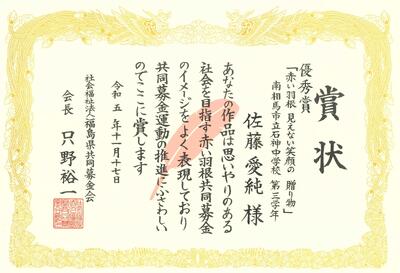 賞状
優秀賞
「赤い羽根 見えない笑顔の 贈り物」
南相馬市立石神中学校 第三学年
佐藤 愛純 様
あなたの作品は思いやりのある
社会を目指す赤い羽根共同募金
のイメージをよく表現しており
共同募金運動の推進にふさわしい
のでここに賞します
令和 五 年十一月十七日
社会福祉法人福島県共同募金会
会長 只野 裕一